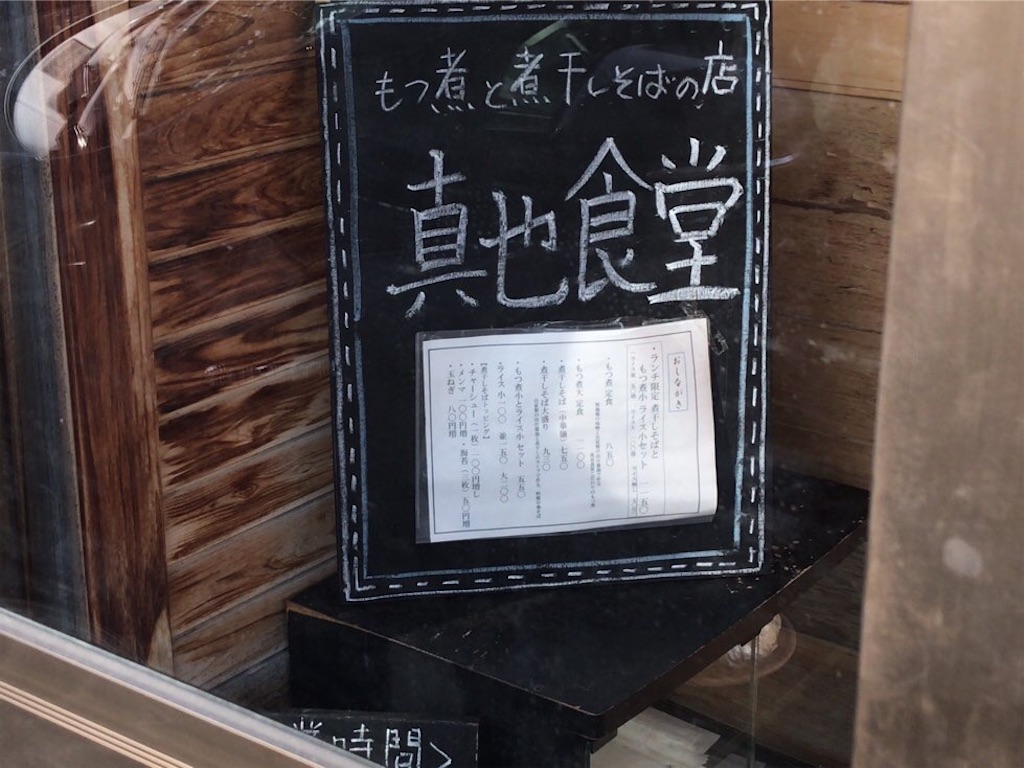 もつ煮と煮干しそばの店
真也食堂
おしながき
・ランチ限定 煮干しそばと
もつ煮小 ライス小セット 一一五〇
・もつ煮 定食 八五〇
・もつ煮大 定食 一一〇〇
・煮干しそば（中華麺）七五〇
・煮干しそば大盛り 九三〇
・もつ煮小とライス小セット 五五〇
・ライス 小一〇〇 並一五〇 大二〇〇
【煮干しそばトッピング】
・チャーシュー（一枚）一〇〇円増し
・メンマ 一〇〇円増 ・海苔（三枚）五〇円増
・玉ねぎ 八〇円増
営時間